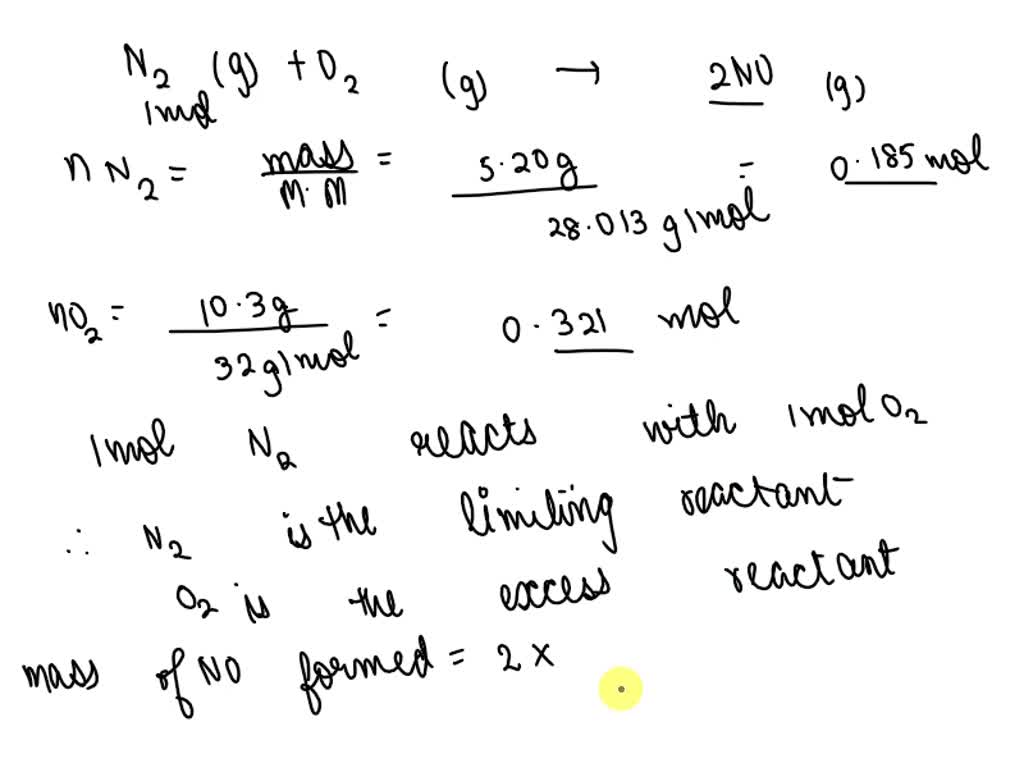 N₂ (g) + O₂ (g) → 2NO (g)
1mol
n N₂ = mass/M.M = 5.20g/28.013 g/mol = 0.185 mol
nO₂ = 10.3g/32g/mol = 0.321 mol
1mol N₂ reacts with 1molO₂
∴ N₂ is the limiting reactant
O₂ is the excess reactant
mass of NO formed = 2 x